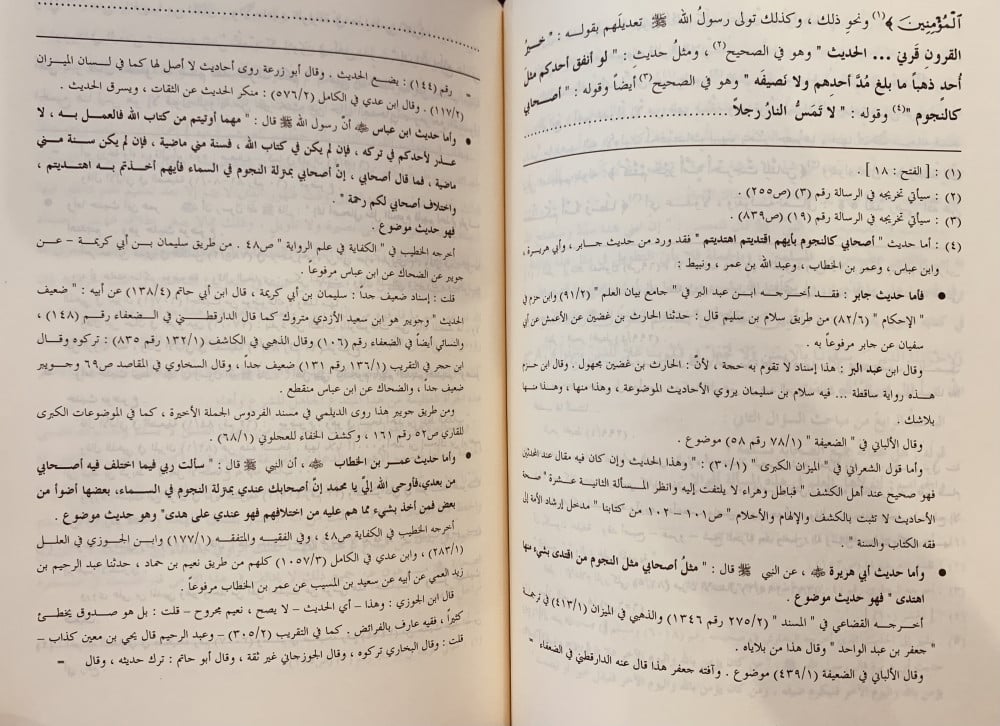 ٱلْمُؤْمِنِينَ ﴾(١) ونحوِ ذلك ، وكذلك تولى رسولُ الله ﷺ تعديلَهم بقولـه : " خيرُ
القرونِ قَرني ... الحديث " وهو في الصحيح(٢) ، ومثلُ حديث : " لو أنفق أحدكم مثلَ
أُحدٍ ذهباً ما بلغ مُدَّ أحدِهم ولا نَصيفَه " وهو في الصحيح(٣) أيضاً وقوله : " أصحابي
كالنجوم "(٤) وقوله : " لا تَمَسُّ النارُ رجلاً
(١) : [ الفتح : ١٨ ] .
(٢) : سيأتي تخريجه في الرسالة رقم (٣) (ص٢٥٥) .
(٣) : سيأتي تخريجه في الرسالة رقم (١٩) (ص٨٣٩) .
(٤) : أما حديث " أصحابي كالنجوم بأيهم اقتديتم اهتديتم " فقد ورد من حديث جابر ، وأبي هريرة ،
وابن عباس ، وعمر بن الخطاب ، وعبد الله بن عمر ، ونبيط :
● فأما حديث جابر : فقد أخرجه ابن عبد البر في " جامع بيان العلم " (٩١/٢) وابن حزم في
" الإحكام " (٨٢/٦) من طريق سلام بن سليم قال : حدثنا الحارث بن غضين عن الأعمش عن أبي
سفيان عن جابر مرفوعاً به .
وقال ابن عبد البر : هذا إسناد لا تقوم به حجة ، لأنّ : الحارث بن غضين مجهول . وقال ابن حزم
هذه رواية ساقطة ... فيه سلام بن سليمان يروي الأحاديث الموضوعة ، وهذا منها ، وهذا منها
بلاشك .
وقال الألباني في " الضعيفة " (٧٨/١ رقم ٥٨) موضوع .
وأما قول الشعراني في " الميزان الكبرى " (٣٠/١) : " وهذا الحديث وإن كان فيه مقال عند المحدثين
فهو صحيح عند أهل الكشف " فباطل وهراء لا يلتفت إليه وانظر المسألة الثانية عشرة " صحة
الأحاديث لا تثبت بالكشف والإلهام والأحلام " ص١٠١ – ١٠٢ من كتابنا " مدخل إرشاد الأمة إلى
فقه الكتاب والسنة " .
● وأما حديث أبي هريرة ﷺ ، عن النبي ﷺ قال : " مثلُ أصحابي مثل النجوم من اقتدى بشيء منها
اهتدى " فهو حديث موضوع .
أخرجه القضاعي في " المسند " (٢٧٥/٢ رقم ١٣٤٦) والذهبي في الميزان (٤١٣/١) في ترجمة
" جعفر بن عبد الواحد " وقال هذا من بلاياه .
وقال الألباني في الضعيفة (٤٣٩/١) موضوع . وآفته جعفر هذا قال عنه الدارقطني في الضعفاء -
- رقم (١٤٤) : يضع الحديث . وقال أبو زرعة روى أحاديث لا أصل لها كما في لسان الميزان
(١١٧/٢) . وقال ابن عدي في الكامل (٥٧٦/٢) : منكر الحديث عن الثقات ، ويسرق الحديث .
● وأما حديث ابن عباس ﷺ أنّ رسول الله ﷺ قال : " مهما أوتيتم من كتاب الله فالعمل به ، لا
عذر لأحدكم في تركه ، فإن لم يكن في كتاب الله ، فسنة مني ماضية ، فإن لم يكن سنة مني
ماضية ، فما قال أصحابي ، إنّ أصحابي بمنزلة النجوم في السماء فأيهم أخذتم به اهتديتم ،
واختلاف أصحابي لكم رحمة " .
فهو حديث موضوع .
أخرجه الخطيب في " الكفاية في علم الرواية " ص٤٨ . من طريق سليمان بن أبي كريمة – عن
جوير عن الضحاك عن ابن عباس مرفوعاً .
قلت : إسناد ضعيف جداً : سليمان بن أبي كريمة ، قال ابن أبي حاتم (١٣٨/٤) عن أبيه : " ضعيف
الحديث " وجويبر هو ابن سعيد الأزدي متروك كما قال الدارقطني في الضعفاء رقم (١٤٨) ،
والنسائي أيضاً في الضعفاء رقم (١٠٦) وقال الذهبي في الكاشف (١٣٢/١ رقم ٨٣٥) : تركوه وقال
ابن حجر في التقريب (١٣٦/١ رقم ١٣١) ضعيف جداً ، وقال السخاوي في المقاصد ص٦٩ وجويبر
ضعيف جداً ، والضحاك عن ابن عباس منقطع .
ومن طريق جويبر هذا روى الديلمي في مسند الفردوس الجملة الأخيرة ، كما في الموضوعات الكبرى
للقاري ص٥٢ رقم ١٦١ ، وكشف الخفاء للعجلوني (٦٨/١) .
● وأما حديث عمر بن الخطاب ﷺ ، أن النبي ﷺ قال : " سألت ربي فيما اختلف فيه أصحابي
من بعدي،فأوحى الله إليّ يا محمد إنّ أصحابك عندي بمنزلة النجوم في السماء، بعضها أضوأ من
بعض فمن أخذ بشيء مما هم عليه من اختلافهم فهو عندي على هدى" وهو حديث موضوع .
أخرجه الخطيب في الكفاية ص٤٨ ، وفي الفقيه والمتفقه (١٧٧/١) وابن الجوزي في العلل
(٢٨٣/١) ، وابن عدي في الكامل (١٠٥٧/٣) كلهم من طريق نعيم بن حماد ، حدثنا عبد الرحيم بن
زيد العمي عن أبيه عن سعيد بن المسيب عن عمر بن الخطاب مرفوعاً .
قال ابن الجوزي : وهذا – أي الحديث – لا يصح ، نعيم مجروح – قلت : بل هو صدوق يخطئ
كثيراً ، فقيه عارف بالفرائض . كما في التقريب (٣٠٥/٢) – وعبد الرحيم قال يحيى بن معين كذاب –
قلت : وقال البخاري تركوه ، وقال الجوزجاني غير ثقة ، وقال أبو حاتم : ترك حديثه ، وقال –